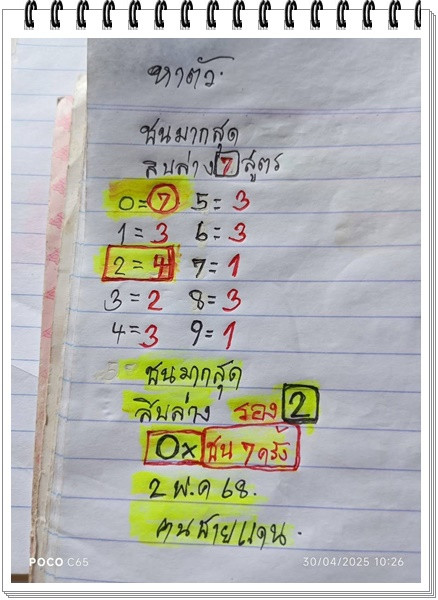 หาตัว.
ชนมากสุด
สิบล่าง 7 สูตร
0=7 5=3
1=3 6=3
2=4 7=1
3=2 8=3
4=3 9=1
ชนมากสุด
สิบล่าง รอง 2
0x ชน 7 ครั้ง
2 พ.ค 68.
ฅนชายแดน.
POCO C65 30/04/2025 10:26